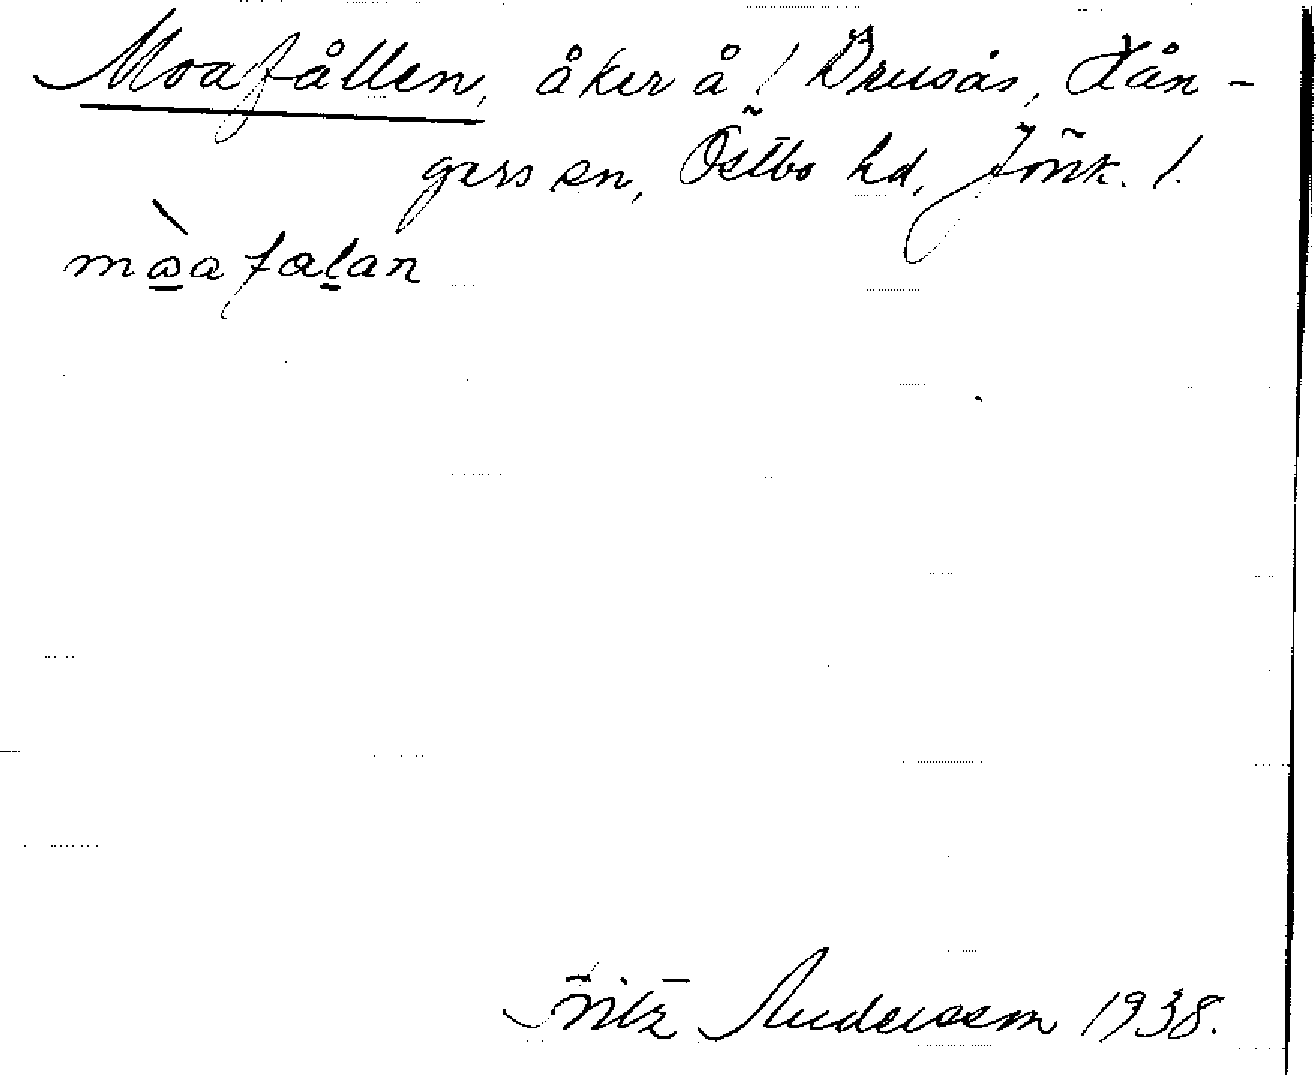 Moafållen, åker å ! Drusås, Kån-
gers sn, Östbo hd, Jönk. l.
mòafalan
Fritz Andersson 1938.